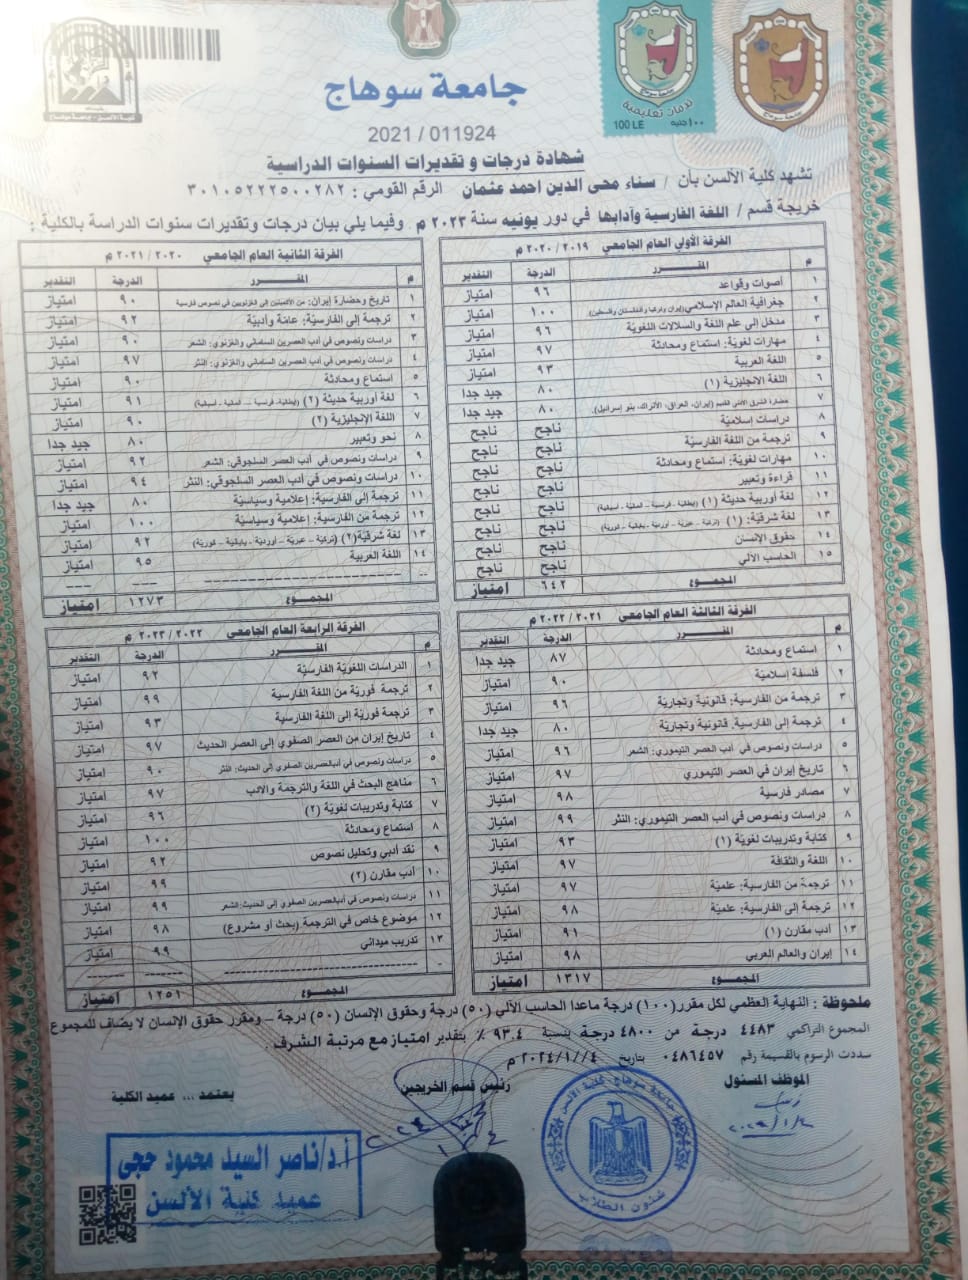 جامعة سوهاج
كلية الألسن - جامعة سوهاج
خدمات تعليمية
100 LE ١٠٠ جنيه
2021 / 011924
شهادة درجات و تقديرات السنوات الدراسية
تشهد كلية الألسن بأن / سناء محى الدين احمد عثمان الرقم القومي : ٣٠١٠٥٢٢٢٥٠٠٢٨٢
خريجة قسم / اللغة الفارسية وآدابها في دور يونيه سنة ٢٠٢٣ م . وفيما يلي بيان درجات وتقديرات سنوات الدراسة بالكلية :
الفرقة الأولي العام الجامعي ٢٠١٩ / ٢٠٢٠ م
م المقرر الدرجة التقدير
١ أصوات وقواعد ٩٦ امتياز
٢ جغرافية العالم الإسلامي (إيران وتركيا وأفغانستان وفلسطين). ١٠٠ امتياز
٣ مدخل إلى علم اللغة والسلالات اللغويّة ٩٦ امتياز
٤ مهارات لغويّة: استماع ومحادثة ٩٧ امتياز
٥ اللغة العربية ٩٣ امتياز
٦ اللغة الإنجليزية (١) ٨٠ جيد جدا
٧ حضارة الشرق الأدنى القديم (إيران، العراق، الأتراك، بنو إسرائيل). ٨٠ جيد جدا
٨ دراسات إسلاميّة ناجح ناجح
٩ ترجمة من اللغة الفارسيّة ناجح ناجح
١٠ مهارات لغويّة: استماع ومحادثة ناجح ناجح
١١ قراءة وتعبير ناجح ناجح
١٢ لغة أوربية حديثة (١) (إيطالية - فرنسية - ألمانية - أسبانية) ناجح ناجح
١٣ لغة شرقيّة: (١) (تركيّة - عبريّة - أورديّة - يابانيّة - كوريّة) ناجح ناجح
١٤ حقوق الإنسان ناجح ناجح
١٥ الحاسب الآلي ناجح ناجح
المجموع ٦٤٢ امتياز
الفرقة الثانية العام الجامعي ٢٠٢٠ / ٢٠٢١ م
م المقرر الدرجة التقدير
١ تاريخ وحضارة إيران: من الأكمينين إلى الغزنويين في نصوص فارسية ٩٠ امتياز
٢ ترجمة إلى الفارسيّة: عامّة وأدبيّة ٩٢ امتياز
٣ دراسات ونصوص في أدب العصرين الساماني والغزنوي: الشعر ٩٠ امتياز
٤ دراسات ونصوص في أدب العصرين الساماني والغزنوي: النثر ٩٧ امتياز
٥ استماع ومحادثة ٩٠ امتياز
٦ لغة أوربية حديثة (٢) (إيطالية - فرنسية - ألمانية - أسبانية) ٩١ امتياز
٧ اللغة الإنجليزية (٢) ٩٠ امتياز
٨ نحو وتعبير ٨٠ جيد جدا
٩ دراسات ونصوص في أدب العصر السلجوقي: الشعر ٩٢ امتياز
١٠ دراسات ونصوص في أدب العصر السلجوقي: النثر ٩٤ امتياز
١١ ترجمة إلى الفارسيّة: إعلامية وسياسيّة ٨٠ جيد جدا
١٢ ترجمة من الفارسية: إعلامية وسياسيّة ١٠٠ امتياز
١٣ لغة شرقيّة(٢) (تركيّة - عبريّة - أورديّة - يابانيّة - كوريّة) ٩٢ امتياز
١٤ اللغة العربية ٩٥ امتياز
المجموع ١٢٧٣ امتياز
الفرقة الثالثة العام الجامعي ٢٠٢١ / ٢٠٢٢ م
م المقرر الدرجة التقدير
١ استماع ومحادثة ٨٧ جيد جدا
٢ فلسفة إسلاميّة ٩٠ امتياز
٣ ترجمة من الفارسية: قانونية وتجاريّة ٩٦ امتياز
٤ ترجمة إلى الفارسية: قانونية وتجاريّة ٨٠ جيد جدا
٥ دراسات ونصوص في أدب العصر التيموري: الشعر ٩٦ امتياز
٦ تاريخ إيران في العصر التيموري ٩٧ امتياز
٧ مصادر فارسية ٩٨ امتياز
٨ دراسات ونصوص في أدب العصر التيموري: النثر ٩٩ امتياز
٩ كتابة وتدريبات لغويّة (١) ٩٣ امتياز
١٠ اللغة والثقافة ٩٧ امتياز
١١ ترجمة من الفارسية: علميّة ٩٧ امتياز
١٢ ترجمة إلى الفارسية: علميّة ٩٨ امتياز
١٣ أدب مقارن (١) ٩١ امتياز
١٤ إيران والعالم العربي ٩٨ امتياز
المجموع ١٣١٧ امتياز
الفرقة الرابعة العام الجامعي ٢٠٢٢ / ٢٠٢٣ م
م المقرر الدرجة التقدير
١ الدراسات اللغويّة الفارسيّة ٩٢ امتياز
٢ ترجمة فوريّة من اللغة الفارسية ٩٩ امتياز
٣ ترجمة فوريّة إلى اللغة الفارسية ٩٣ امتياز
٤ تاريخ إيران من العصر الصفوي إلى العصر الحديث ٩٧ امتياز
٥ دراسات ونصوص في أدب العصرين الصفوي إلى الحديث: النثر ٩٠ امتياز
٦ مناهج البحث في اللغة والترجمة والأدب ٩٧ امتياز
٧ كتابة وتدريبات لغويّة (٢) ٩٦ امتياز
٨ استماع ومحادثة ١٠٠ امتياز
٩ نقد أدبي وتحليل نصوص ٩٢ امتياز
١٠ أدب مقارن (٢) ٩٩ امتياز
١١ دراسات ونصوص في أدب العصرين الصفوي إلى الحديث: الشعر ٩٩ امتياز
١٢ موضوع خاص في الترجمة (بحث أو مشروع) ٩٨ امتياز
١٣ تدريب ميداني ٩٩ امتياز
المجموع ١٢٥١ امتياز
ملحوظة : النهاية العظمي لكل مقرر (١٠٠) درجة ماعدا الحاسب الآلي (٥٠) درجة وحقوق الإنسان (٥٠) درجة - ومقرر حقوق الإنسان لا يضاف للمجموع
المجموع التراكمي ٤٤٨٣ درجة من ٤٨٠٠ درجة بنسبة ٩٣.٤ % بتقدير امتياز مع مرتبة الشرف
سددت الرسوم بالقسيمة رقم ٠٤٨٦٤٥٧ بتاريخ ٢٠٢٤/١/٤ م
الموظف المسئول
رئيس قسم الخريجين
يعتمد ... عميد الكلية
أ.د/ناصر السيد محمود حجى
عميد كلية الألسن
جامعة سوهاج - كلية الألسن
شئون الطلاب
جامعة